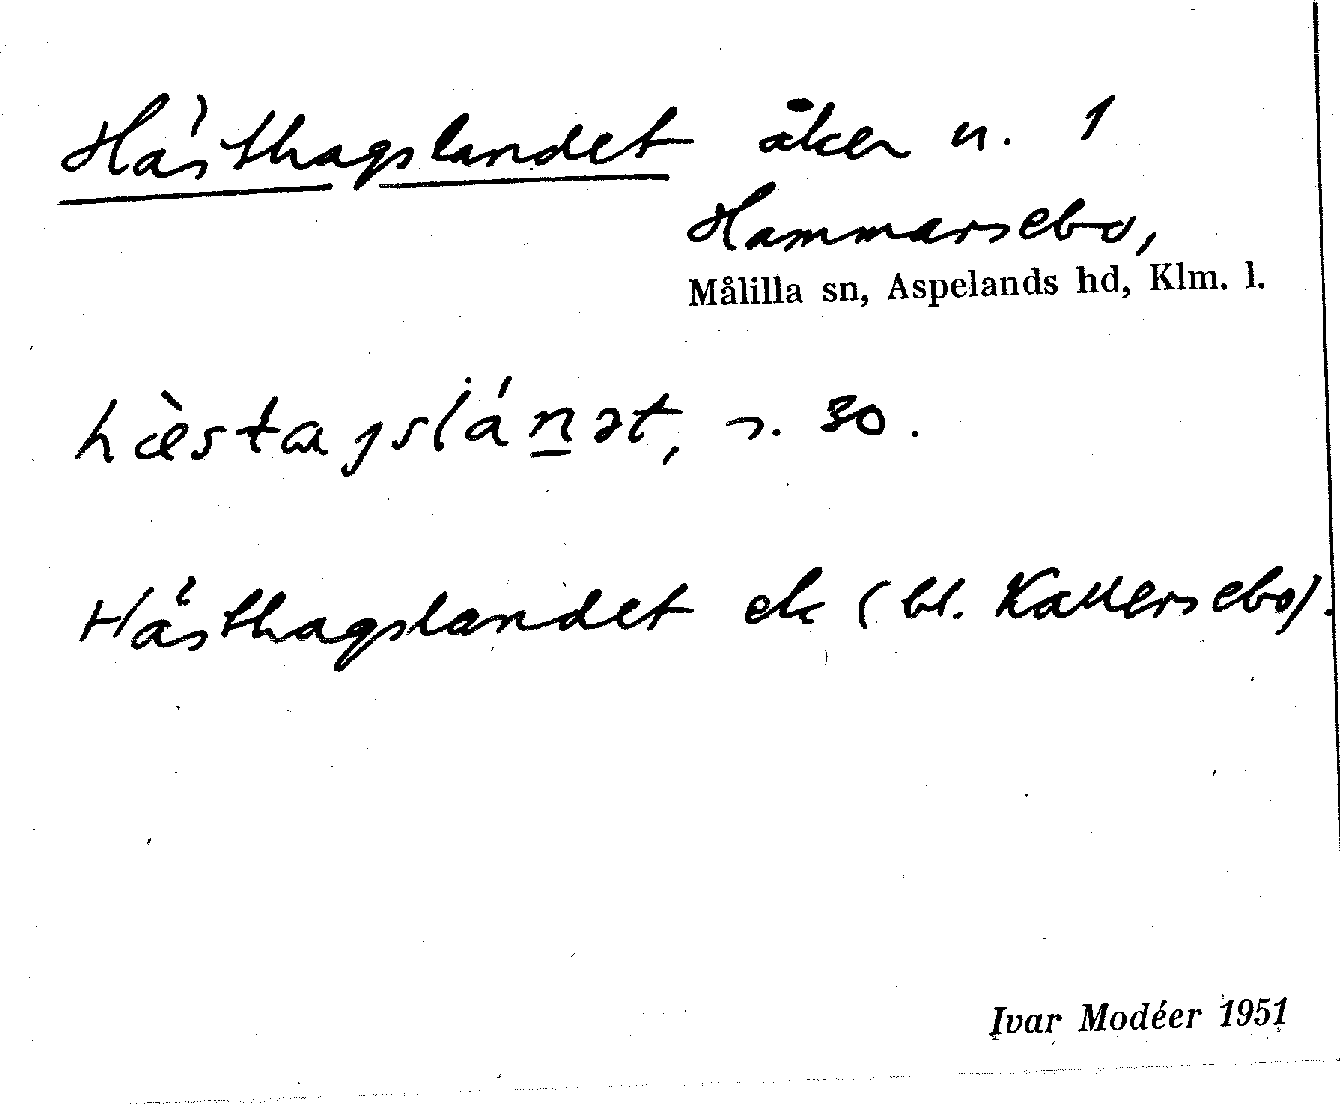 Hästhagslandet åker n. 1
Hammarsebo,
Målilla sn, Aspelands hd, Klm. l.
hæ̀stagslánət, s. 30.
Hästhagslandet ek (bl. Kallersebo).
Ivar Modéer 1951